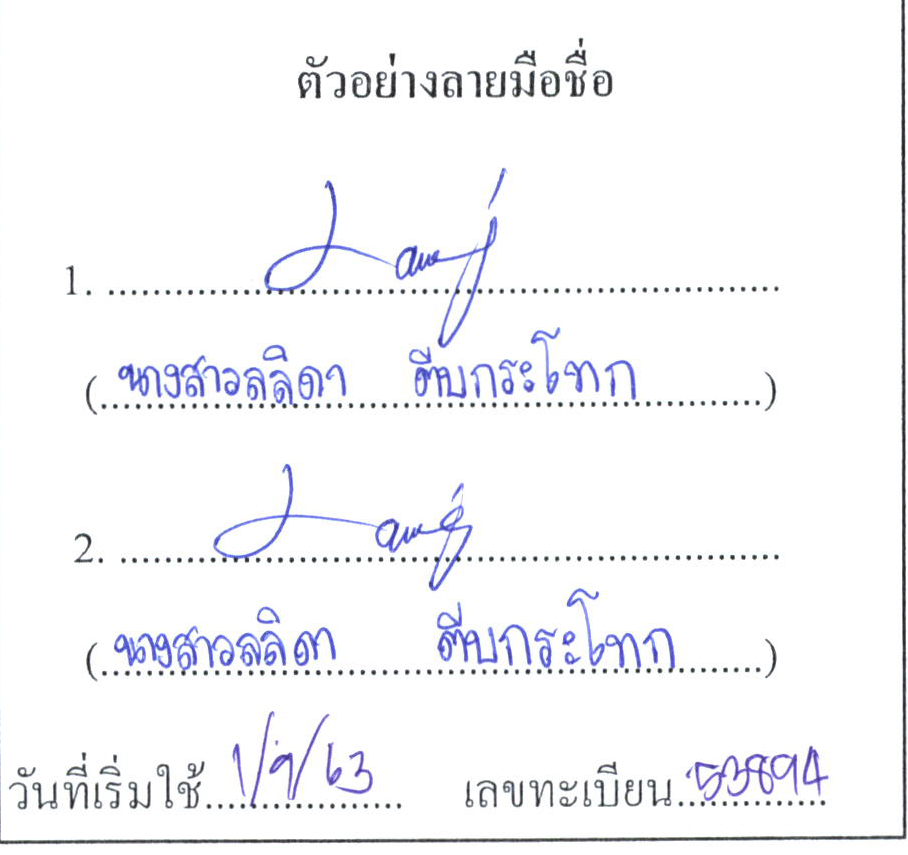 ตัวอย่างลายมือชื่อ
1. ........................................
(นางสาวลลิดา ตีบกระโทก)
2. ........................................
(นางสาวลลิดา ตีบกระโทก)
วันที่เริ่มใช้ 1/9/63 เลขทะเบียน 53894